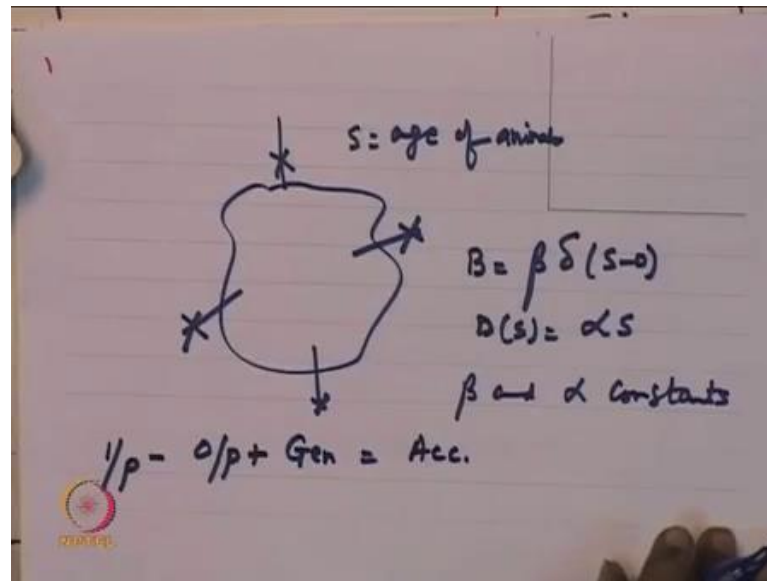 S = age of animals
B = β δ (S-0)
D(S) = αS
β and α constants
I/p - O/p + Gen = Acc.
NPTEL